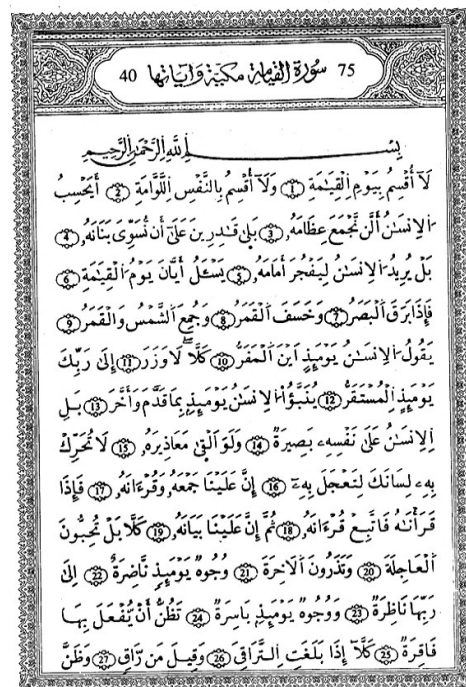 75 سُورَةُ الْقِيَامَةِ مَكِّيَّة وَءَايَاتُهَا 40
بِسْمِ اللَّهِ الرَّحْمَٰنِ الرَّحِيمِ
لَآ أُقْسِمُ بِيَوْمِ اِ۬لْقِيَٰمَةِ 1 وَلَآ أُقْسِمُ بِالنَّفْسِ اِ۬للَّوَّامَةِ 2 أَيَحْسِبُ
اُ۬لِانسَٰنُ أَلَّن نَّجْمَعَ عِظَامَهُۥ 3 بَلَىٰ قَٰدِرِينَ عَلَىٰٓ أَن نُّسَوِّيَ بَنَانَهُۥ 4
بَلْ يُرِيدُ اُ۬لِانسَٰنُ لِيَفْجُرَ أَمَامَهُۥ 5 يَسْـَٔلُ أَيَّانَ يَوْمُ اُ۬لْقِيَٰمَةِ 6
فَإِذَا بَرَقَ اَ۬لْبَصَرُ 7 وَخَسَفَ اَ۬لْقَمَرُ 8 وَجُمِعَ اَ۬لشَّمْسُ وَالْقَمَرُ 9
يَقُولُ اُ۬لِانسَٰنُ يَوْمَئِذٍ اَيْنَ اَ۬لْمَفَرُّ 10 كَلَّا لَا وَزَرَ 11 إِلَىٰ رَبِّكَ
يَوْمَئِذٍ اِ۬لْمُسْتَقَرُّ 12 يُنَبَّؤُاْ اُ۬لِانسَٰنُ يَوْمَئِذٍۢ بِمَا قَدَّمَ وَأَخَّرَ 13 بَلِ
اِ۬لِانسَٰنُ عَلَىٰ نَفْسِهِۦ بَصِيرَةٌ 14 وَلَوَ اَلْقَىٰ مَعَاذِيرَهُۥ 15 لَا تُحَرِّكْ
بِهِۦ لِسَانَكَ لِتَعْجَلَ بِهِۦٓ 16 إِنَّ عَلَيْنَا جَمْعَهُۥ وَقُرْءَانَهُۥ 17 فَإِذَا
قَرَأْنَٰهُ فَاتَّبِعْ قُرْءَانَهُۥ 18 ثُمَّ إِنَّ عَلَيْنَا بَيَانَهُۥ 19 كَلَّا بَلْ تُحِبُّونَ
اَ۬لْعَاجِلَةَ 20 وَتَذَرُونَ اَ۬لَاخِرَةَ 21 وُجُوهٌ يَوْمَئِذٍ نَّاضِرَةٌ 22 إِلَىٰ
رَبِّهَا نَاظِرَةٌ 23 وَوُجُوهٌ يَوْمَئِذٍۢ بَاسِرَةٌ 24 تَظُنُّ أَنْ يُّفْعَلَ بِهَا
فَاقِرَةٌ 25 كَلَّآ إِذَا بَلَغَتِ اِ۬لتَّرَاقِيَ 26 وَقِيلَ مَن رَّاقٍ 27 وَظَنَّ